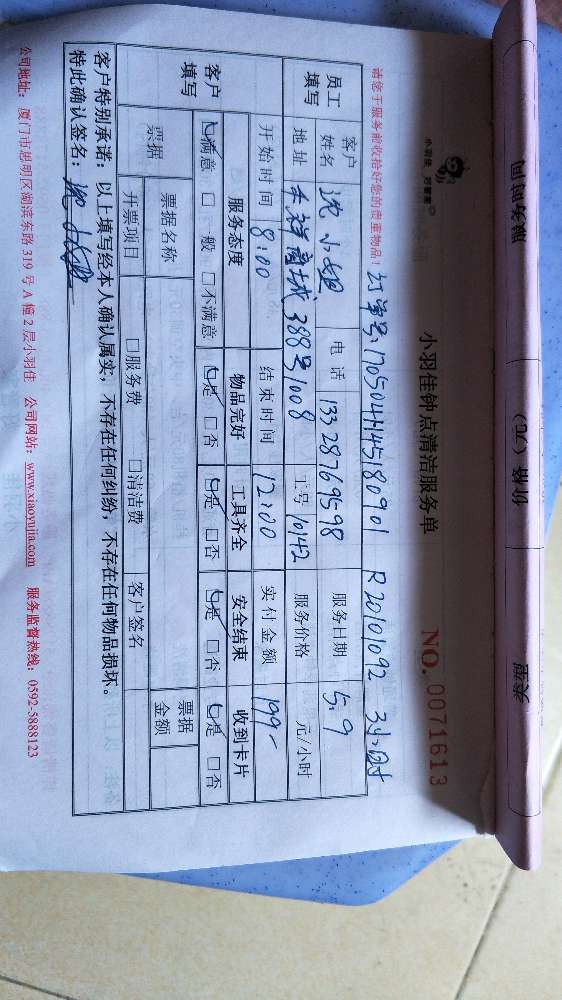 服务时间
价格（元）
小羽佳 好管家
小羽佳钟点清洁服务单
NO. 0071613
请您于服务前收拾好您的贵重物品！
订单号: 1705044145180901 R20101092 3小时
员工填写
客户姓名 沈小姐 电话 13328769598 服务日期 5.9
地址 禾祥商城388号1008 工号 10142 服务价格 元/小时
开始时间 8:00 结束时间 12:00 实付金额 199-
客户填写
服务态度 物品完好 工具齐全 安全结束 收到卡片
☑满意 □一般 □不满意 ☑是 □否 ☑是 □否 ☑是 □否 ☑是 □否
票据 票据名称 票据金额
开票项目 □服务费 □清洁费 客户签名
客户特别承诺：以上填写经本人确认属实，不存在任何纠纷，不存在任何物品损坏。
特此确认签名：沈小姐
公司地址：厦门市思明区湖滨东路 319 号 A 幢 2 层小羽佳 公司网站：www.xiaoyujia.com 服务监督热线：0592-5888123